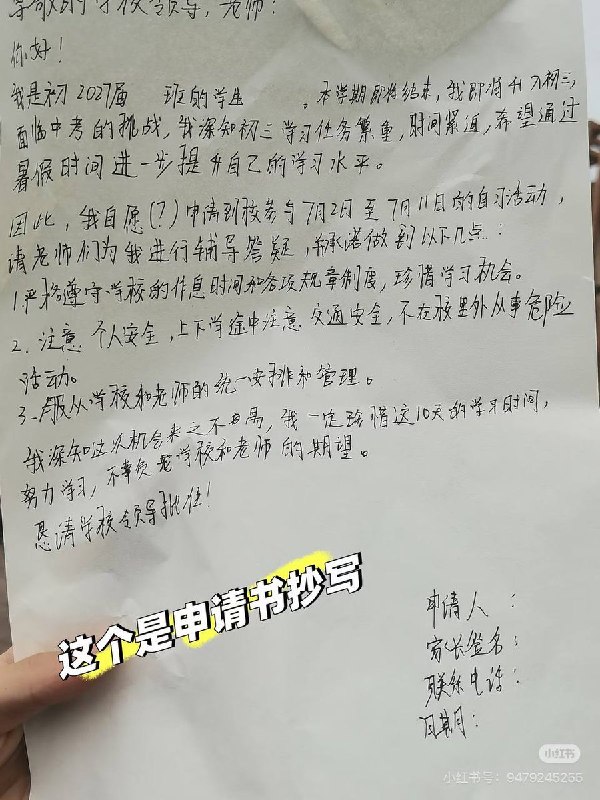 尊敬的学校领导，老师：
你好！
我是初2027届 班的学生 。本学期即将结束，我即将升入初三，
面临中考的挑战，我深知初三学习任务繁重，时间紧迫，希望通过
暑假时间进一步提升自己的学习水平。
因此，我自愿(?)申请到校参与7月2日至7月11日的自习活动，
请老师们为我进行辅导答疑，并承诺做到以下几点：
1.严格遵守学校的作息时间和各项规章制度，珍惜学习机会。
2.注意个人安全，上下学途中注意交通安全，不在校里外从事危险
活动。
3.服从学校和老师的统一安排和管理。
我深知这次机会来之不易，我一定珍惜这10天的学习时间，
努力学习，不辜负学校和老师的期望。
恳请学校领导批准！
这个是申请书抄写
申请人：
家长签名：
联系电话：
日期：
小红书
小红书号：9479245255